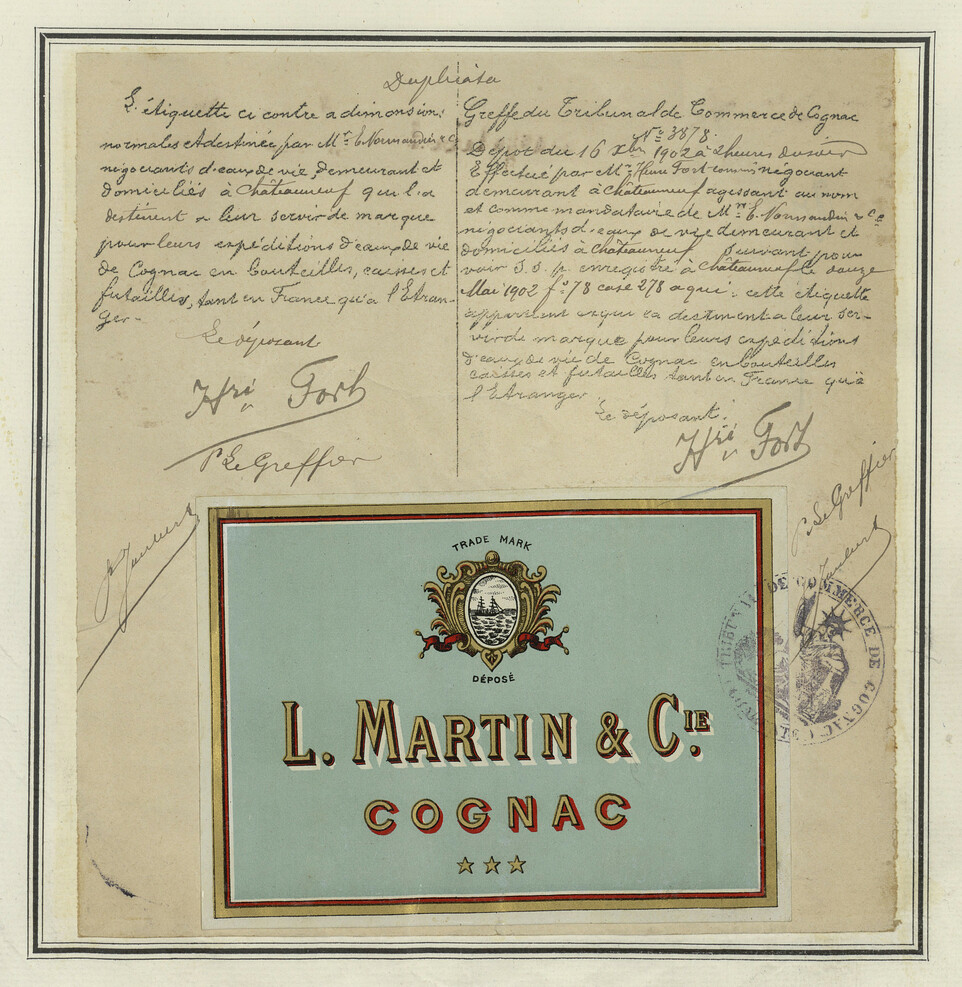 Duplicata
L'étiquette ci contre a dimensions
normales et destinée par Mr E. Normandin & Cie
négociants d'eaux de vie, demeurant et
domiciliés à Châteauneuf qui l'a
destinent a leur servir de marque
pour leurs expéditions d'eaux de vie
de Cognac en bouteilles, caisses et
futailles, tant en France qu'a l'Etran-
ger.
Le déposant
Hri Fort
P. Le Greffier
Greffe du Tribunal de Commerce de Cognac
No 3878.
Dépot du 16 Xbre 1902 à 2 heures du soir
Effectué par Mr Henri Fort commis négociant
demeurant à Châteauneuf agissant au nom
et comme mandataire de Mrs E. Normandin & Cie
négociants d'eaux de vie demeurant et
domiciliés à Châteauneuf suivant pou-
voir S.S.p. enregistré à Châteauneuf le douze
Mai 1902 fo 78 case 278 a qui cette étiquette
appartient et qui la destinent a leur ser-
vir de marque pour leurs expéditions
d'eaux de vie de Cognac en bouteilles
caisses et futailles tant en France qu'à
l'Etranger.
Le déposant.
Hri Fort
P. Le Greffier
TRADE MARK
DÉPOSÉ
L. MARTIN & CIE.
COGNAC
TRIBUNAL DE COMMERCE DE COGNAC